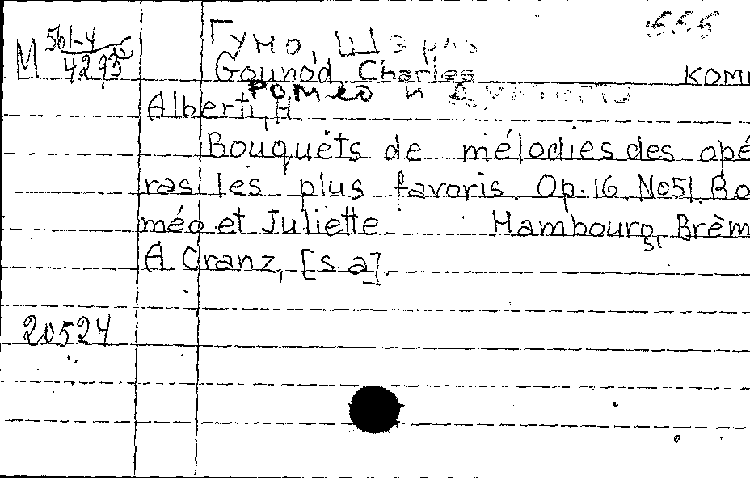 М 561-4 Гуно, Шарль
4293 Gounod Charles комп
Ромео и
Alberti, H
Bouquets de mélodies des opé
ras les plus favoris. Op.16 No51. Ro
méo et Juliette Hambourg, Brèm
A Cranz, [s a].
20524